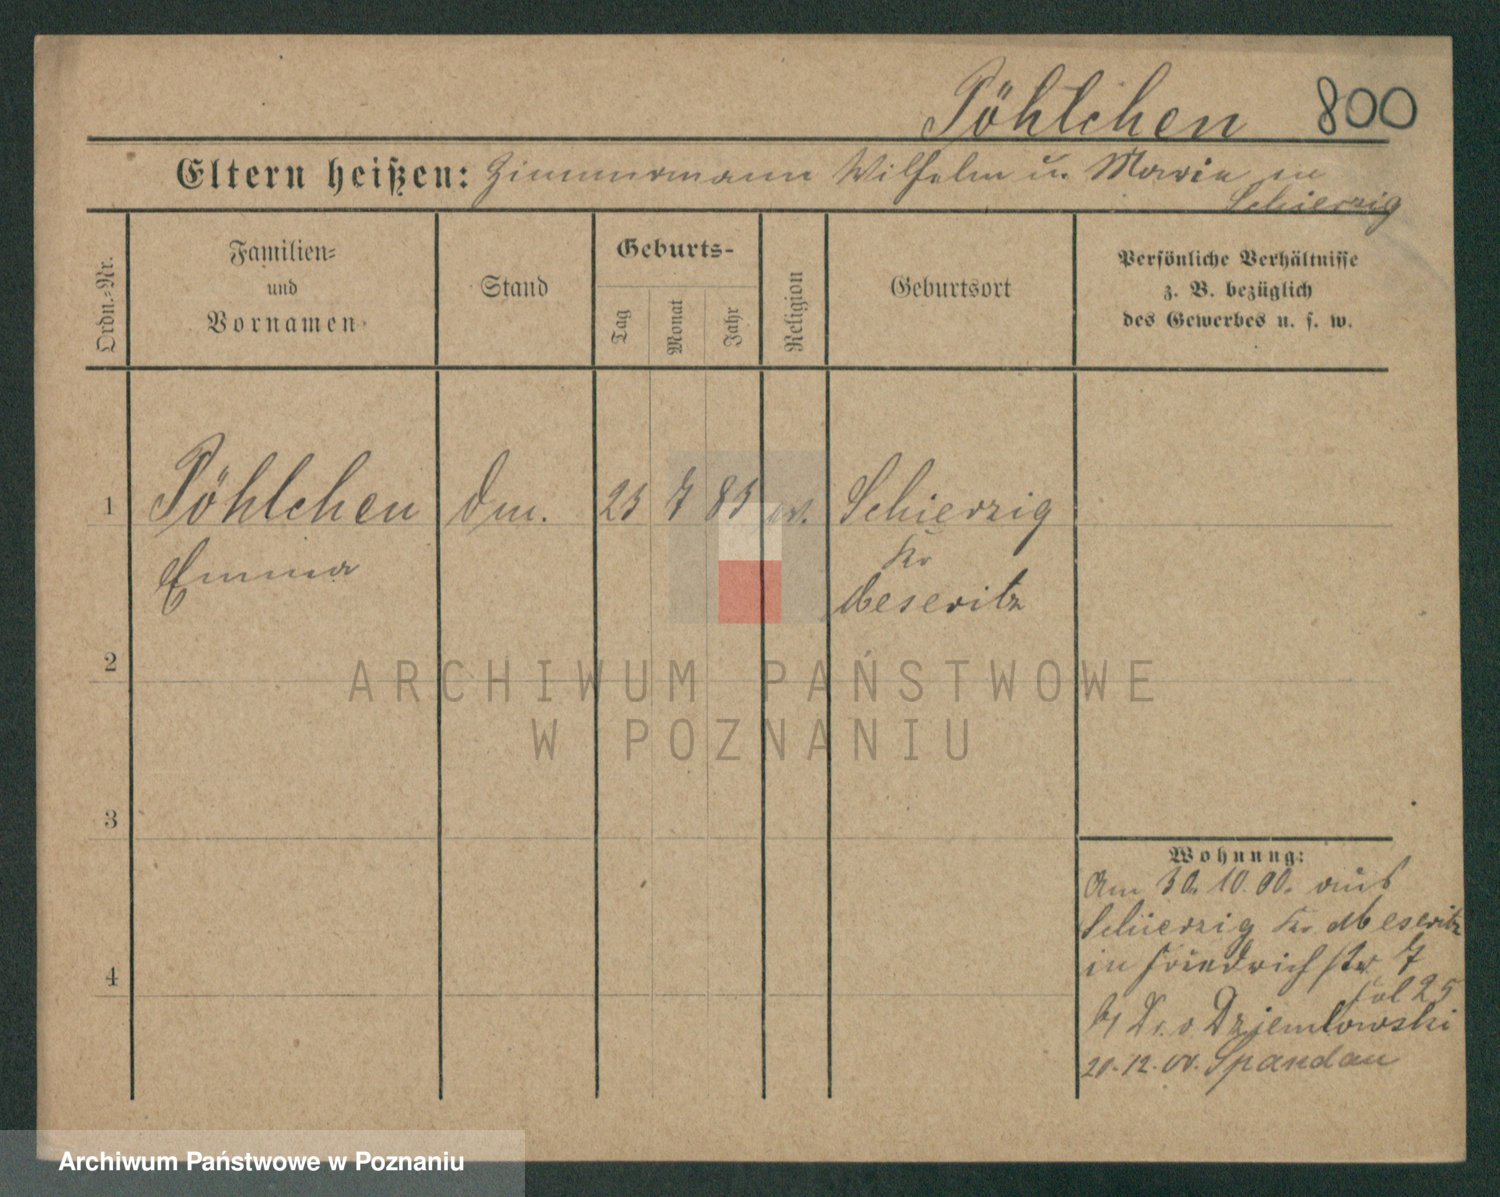 Pöhlchen 800
Eltern heißen: Zimmermann Wilhelm u. Marie in
Schierzig
Ordn.-Nr.
Familien-
und
Vornamen
Stand
Geburts-
Tag
Monat
Jahr
Religion
Geburtsort
Persönliche Verhältnisse
z. B. bezüglich
des Gewerbes u. s. w.
1 Pöhlchen Dm. 25 7 85 ev. Schierzig
Emma
Kr
Meseritz
2
3
4
Wohnung:
Am 30. 10. 00. aus
Schierzig Kr Meseritz
in Friedrichstr 7
Dr. v Dziembowski
20.12.00. Spandau
ARCHIWUM PAŃSTWOWE
W POZNANIU
Archiwum Państwowe w Poznaniu